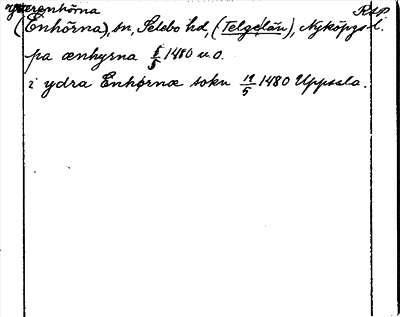 Ytterenhörna RAP
(Enhörna), sn, Selebo hd, (Telgelän), Nyköpgs l.
pa ænhyrna 8/5 1480 u.o.
i ydra Enhørnæ sokn 19/5 1480 Uppsala.